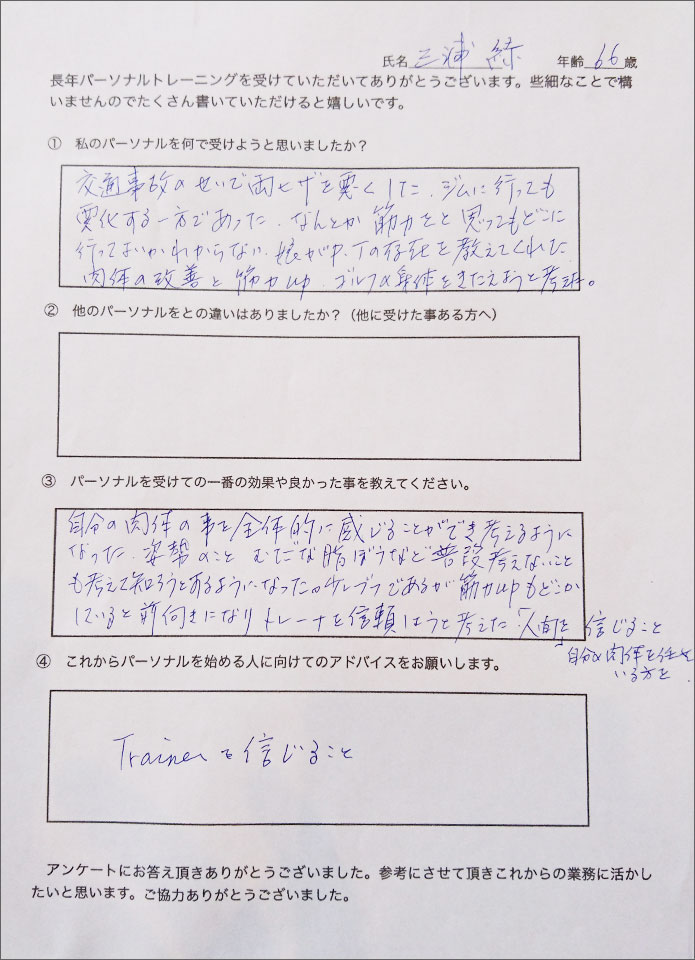 氏名 三浦 綾 年齢 66 歳
長年パーソナルトレーニングを受けていただいてありがとうございます。些細なことで構
いませんのでたくさん書いていただけると嬉しいです。
① 私のパーソナルを何で受けようと思いましたか？
交通事故のせいで両ヒザを悪くした、ジムに行っても
悪化する一方であった、なんとか筋力をと思ってもどこに
行ってよいかわからない、娘が の存在を教えてくれた
肉体の改善と筋力up、ゴルフの身体をきたえようと考えた。
② 他のパーソナルをとの違いはありましたか？（他に受けた事ある方へ）
③ パーソナルを受けての一番の効果や良かった事を教えてください。
自分の肉体の事を全体的に感じることができ考えるように
なった、姿勢のこと むだな脂ぼうなど普段考えないこと
も考えて知ろうとするようになった であるが筋力upもどこか
していると前向きになりトレーナを信頼しようと考えた「人間を信じること
自分の肉体を任せ
いる方を
④ これからパーソナルを始める人に向けてのアドバイスをお願いします。
Trainerを信じること
アンケートにお答え頂きありがとうございました。参考にさせて頂きこれからの業務に活かし
たいと思います。ご協力ありがとうございました。